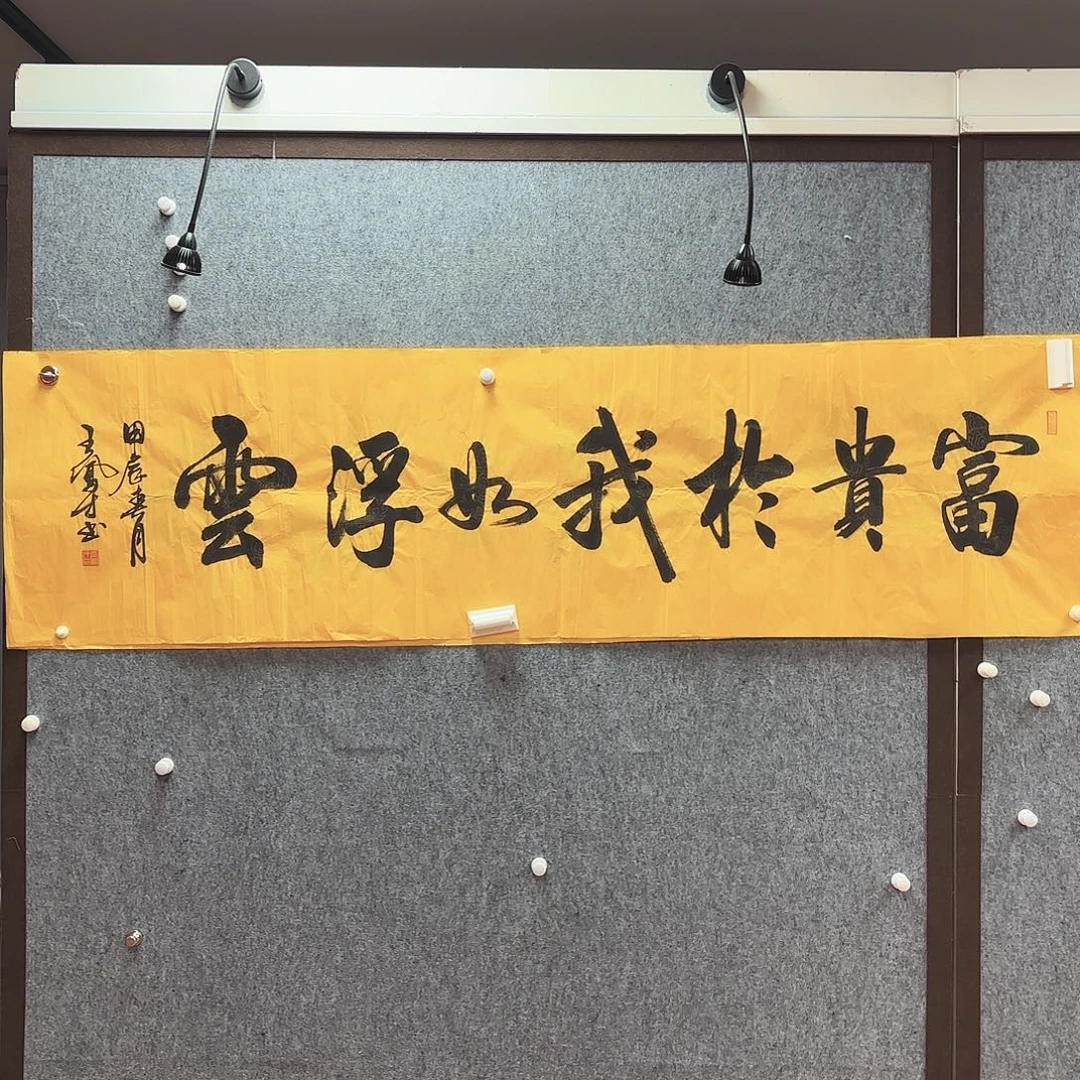 富貴於我如浮雲
甲辰春月
王鳳才书